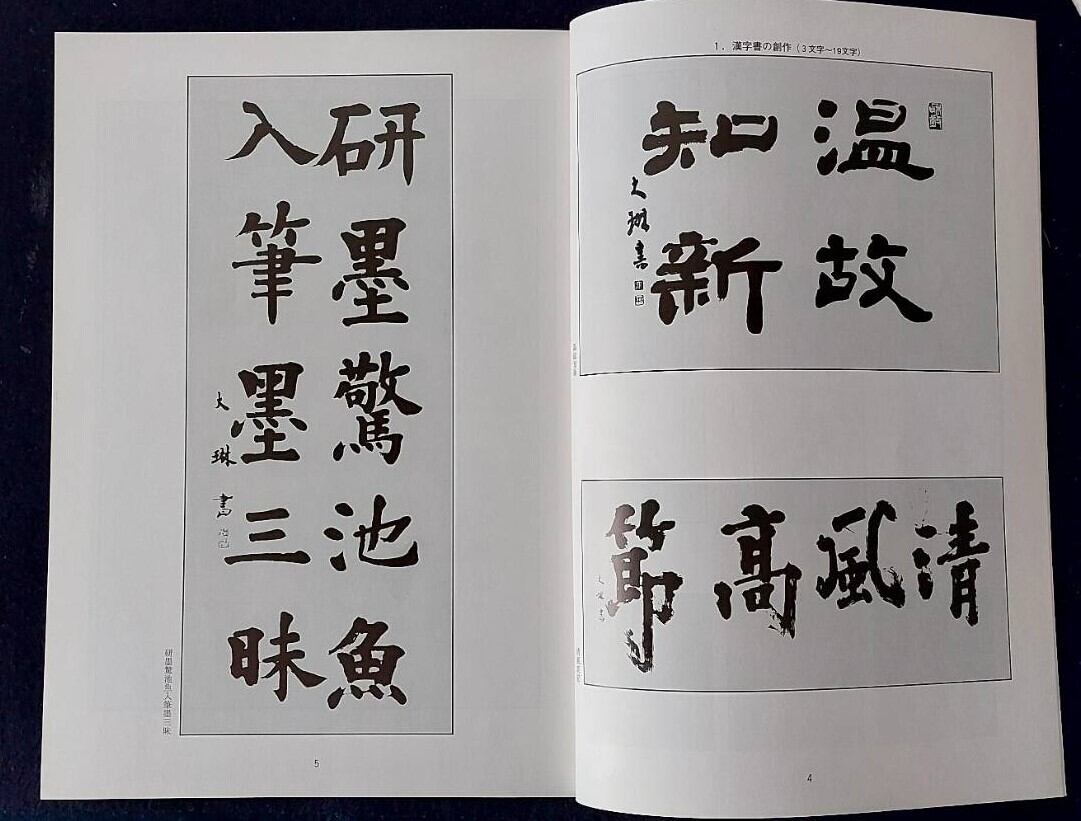 1. 漢字書の創作(3文字〜19文字)
温故
知新
大琳書
温故知新
清風高節
大琳書
清風高節
4
研墨驚池魚
入筆墨三昧
大琳書
研墨驚池魚入筆墨三昧
5